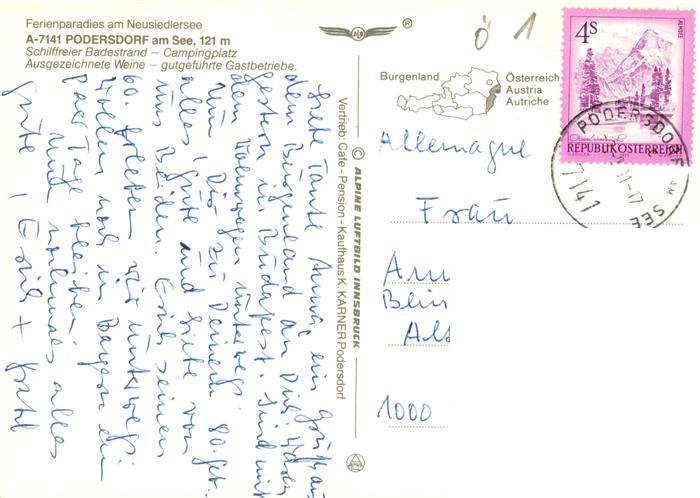 Ferienparadies am Neusiedlersee
A-7141 PODERSDORF am See, 121 m
Schilffreier Badestrand – Campingplatz
Ausgezeichnete Weine – gutgeführte Gastbetriebe.
®
Ö 1
Burgenland
Österreich
Austria
Autriche
4S
REPUBLIK ÖSTERREICH
PODERSDORF AM SEE
7141
Vertrieb: Cafe - Pension - Kaufhaus K. KARNER Podersdorf
© ALPINE LUFTBILD INNSBRUCK
Liebe Tante ein Gruß aus
dem Burgenland an Dich, waren
gestern in Budapest. Sind mit
dem Wohnwagen unterwegs.
Nun Dir zu Deinem 80. Geb.
alles Gute und Liebe von
uns Beiden. Erich seinen
60. wir unterwegs
wollen noch in Bayern ein
paar Tage bleiben.
Und nochmals alles
Gute, Erich +
Allemagne
Frau
Ann
Blin
Als
1000